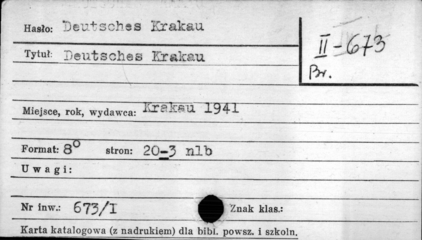 Hasło: Deutsches Krakau
II-673
Br.
Tytuł: Deutsches Krakau
Miejsce, rok, wydawca: Krakau 1941
Format: 8° stron: 20-3 nlb
Uwagi:
Nr inw.: 673/I Znak klas.:
Karta katalogowa (z nadrukiem) dla bibl. powsz. i szkoln.